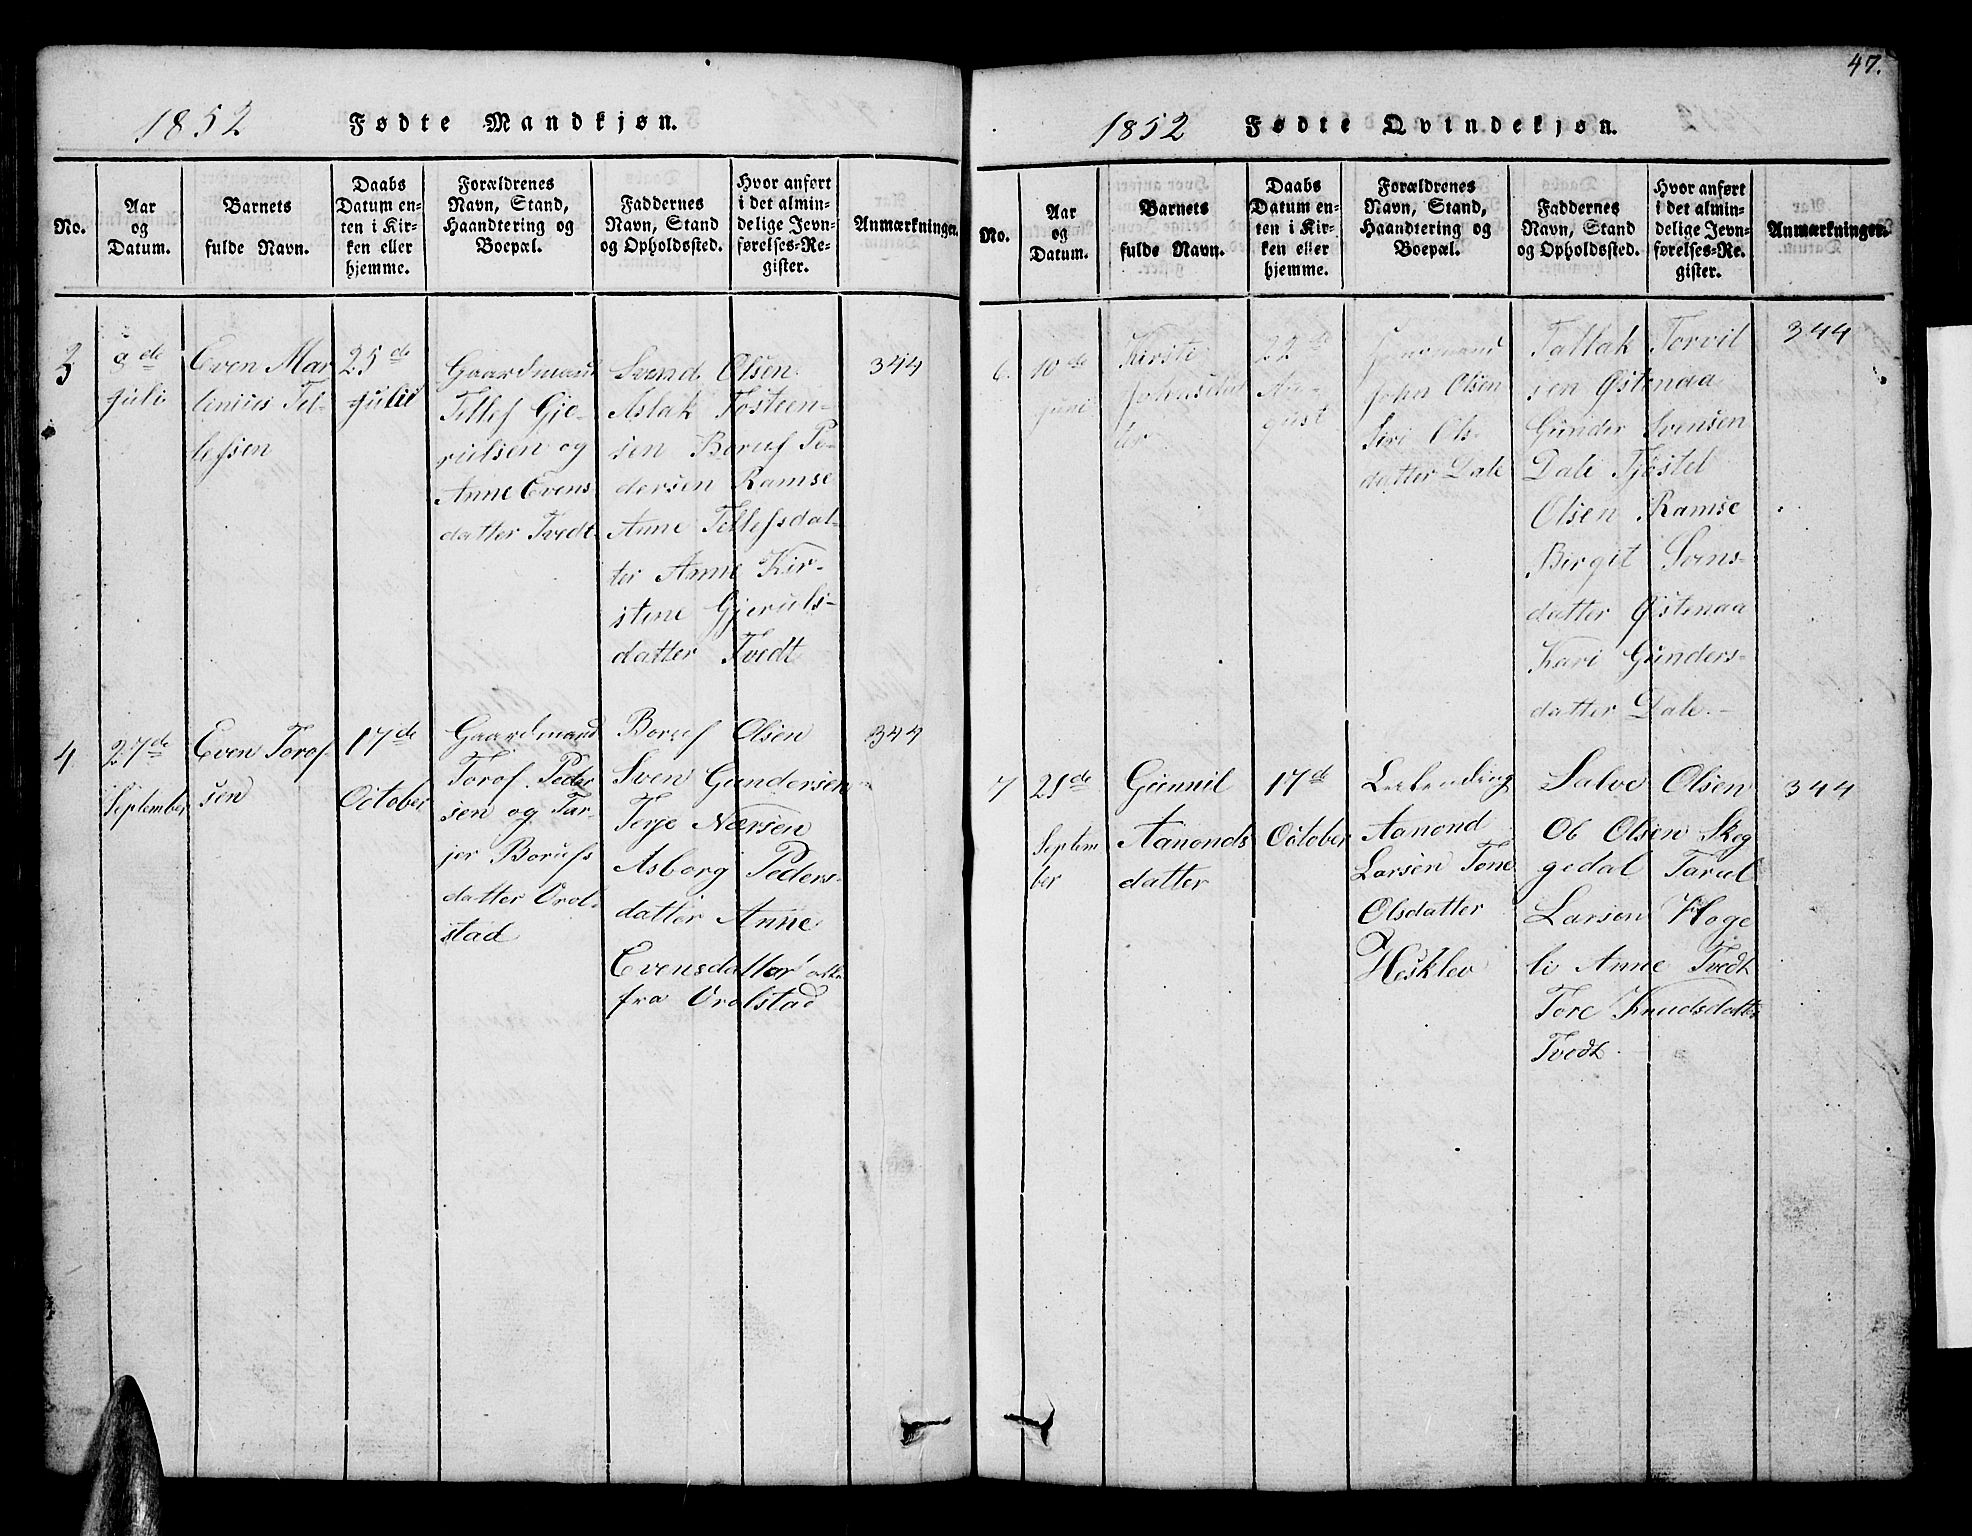 47.
1852 Fødte Mandkjøn.
No.
Aar
og
Datum.
Barnets
fulde Navn.
Daabs
Datum en-
ten i Kir-
ken eller
hjemme.
Forældrenes
Navn, Stand,
Haandtering og
Boepæl.
Faddernes
Navn, Stand
og Opholdssted.
Hvor anført
i det almin-
delige Jevn-
førelses-Re-
gister.
Anmærkninger.
3
9de
Juli
Even Mar
linius Tel-
lefsen
25de
Julii
Gaardmand
Tellef Gje-
rulsen og
Anne Evens
datter Tvedt
Svend Olsen
Aslak Tosteen-
sen Boruf Pe-
dersen Ramse
Anne Tellefsdat-
ter Anne Kir-
stine Gjeruls-
datter Tvedt
344
4
27de
September
Even Torof-
sen
17de
October
Gaardmand
Torof Peder
sen og Tar-
jer Borufs
datter Vrol-
stad
Boruf Olsen
Sven Gundersen
Terje Nærsen
Asborg Peders-
datter Anne
Evensdatter
fra Vrolstad
344
1852 Fødte Qvindekjøn.
No.
Aar
og
Datum.
Barnets
fulde Navn.
Daabs
Datum en-
ten i Kir-
ken eller
hjemme.
Forældrenes
Navn, Stand,
Haandtering og
Boepæl.
Faddernes
Navn, Stand
og Opholdssted.
Hvor anført
i det almin-
delige Jevn-
førelses-Re-
gister.
Anmærkninger.
6.
10de
Juni
Kirsti
Johnsdat
ter
22de
Au-
gust
John Olsen
Siri Ols-
datter Dale
Tallak Torvil
sen Østenaa
Gunder Svensen
Dale Tjøstel
Olsen Ramse
Birgit Svens-
datter Østenaa
Kari Gunders-
datter Dale.
344
7
21de
Septem
ber
Gunnil
Aanonds
datter
17de
October
Leilending
Aanond
Larsen Tone
Olsdatter
Hesklev
Salve Olsen
Ob Olsen Skeg
gedal Tarul
Larsen Hoge
li Anne Tvedt
Tore Knudsdatter
Tvedt
344